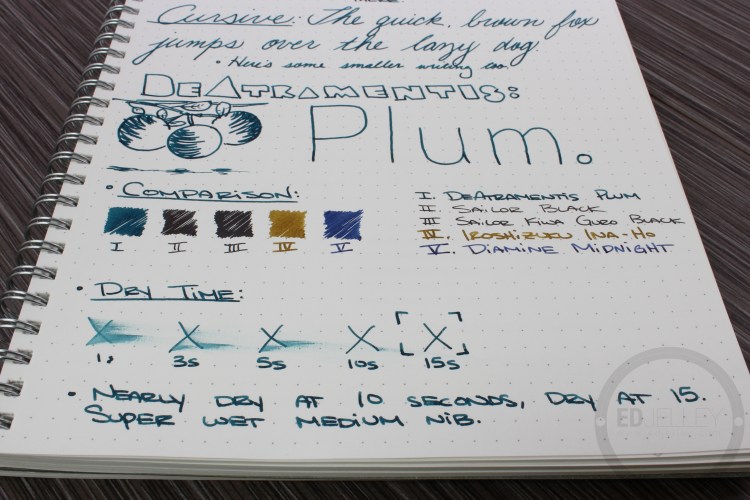 Cursive: The quick, brown fox
jumps over the lazy dog.
• Here's some smaller writing too
DeAtramentis:
Plum.
• Comparison:
I II III IV V
I. DeAtramentis Plum
II. Sailor Black
III Sailor Kiwa Guro Black
IV. Iroshizuku Ina-Ho
V. Diamine Midnight
• Dry Time:
1s 3s 5s 10s 15s
• Nearly dry at 10 seconds, dry at 15.
Super wet medium nib.
EDJELLEY